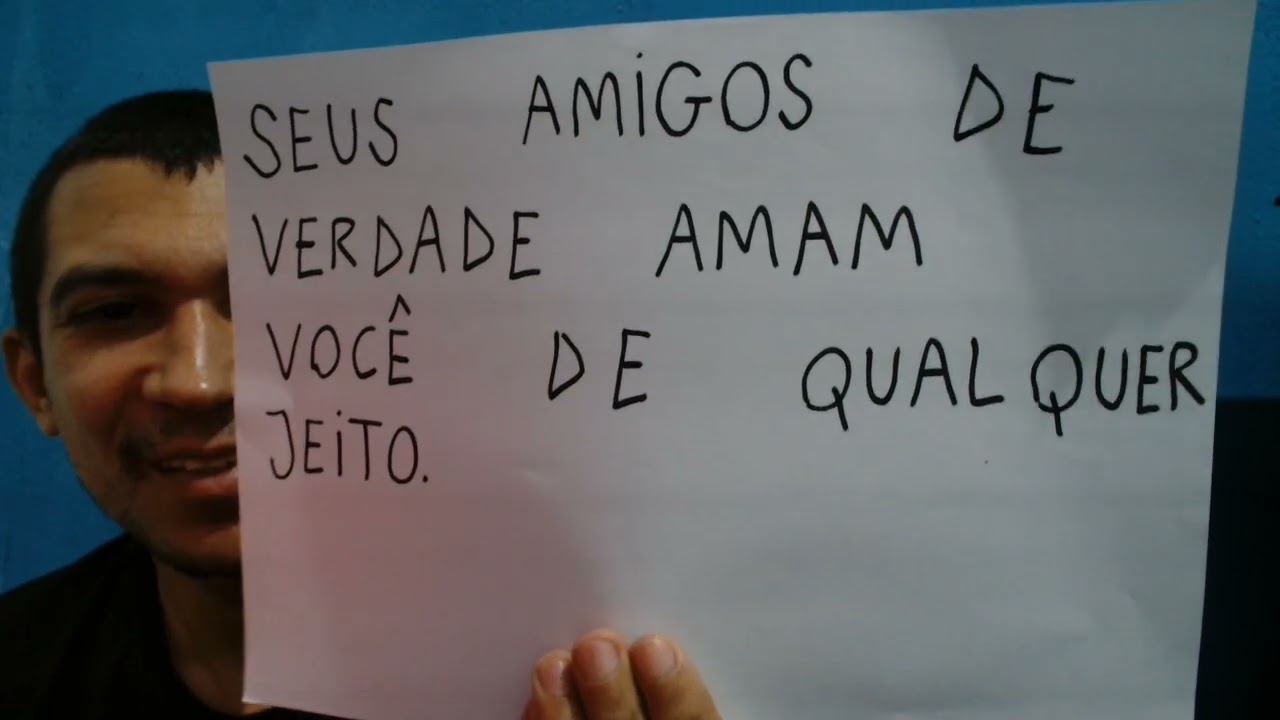 SEUS AMIGOS DE
VERDADE AMAM
VOCÊ DE QUALQUER
JEITO.